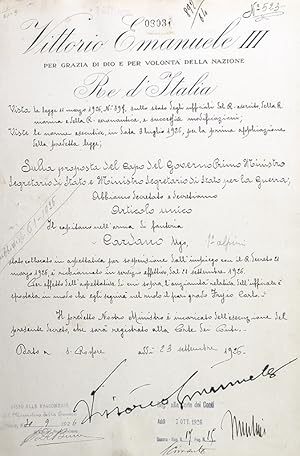 03931
N° 523
Vittorio Emanuele III
PER GRAZIA DI DIO E PER VOLONTÀ DELLA NAZIONE
Re d'Italia
Vista la legge 11 marzo 1926, N° 397, sullo stato degli ufficiali del R. esercito, della R.
marina e della R. aeronautica, e successive modificazioni;
Viste le norme esecutive, in data 3 luglio 1926, per la prima applicazione
della predetta legge;
Sulla proposta del Capo del Governo Primo Ministro
Segretario di Stato e Ministro Segretario di Stato per la Guerra;
Abbiamo decretato e decretiamo
Articolo unico
Il capitano nell'arma di fanteria
Cardano Ugo, 1° alpini
stato collocato in aspettativa per sospensione dall'impiego con il R. Decreto 21
marzo 1926 è richiamato in servizio effettivo dal 21 settembre 1926.
Per effetto dell'aspettativa di cui sopra l'anzianità relativa dell'ufficiale è
spostata in modo che egli segua nel ruolo il pari grado Carlo.
Il predetto Nostro Ministro è incaricato dell'esecuzione del
presente Decreto che sarà registrato alla Corte dei Conti.
Dato a S. Rossore addì 23 settembre 1926.
Vittorio Emanuele
VISTO ALLA RAGIONERIA
9 1926
Reg. alla Corte dei Conti
OTT. 1926
Mussolini
Guerra